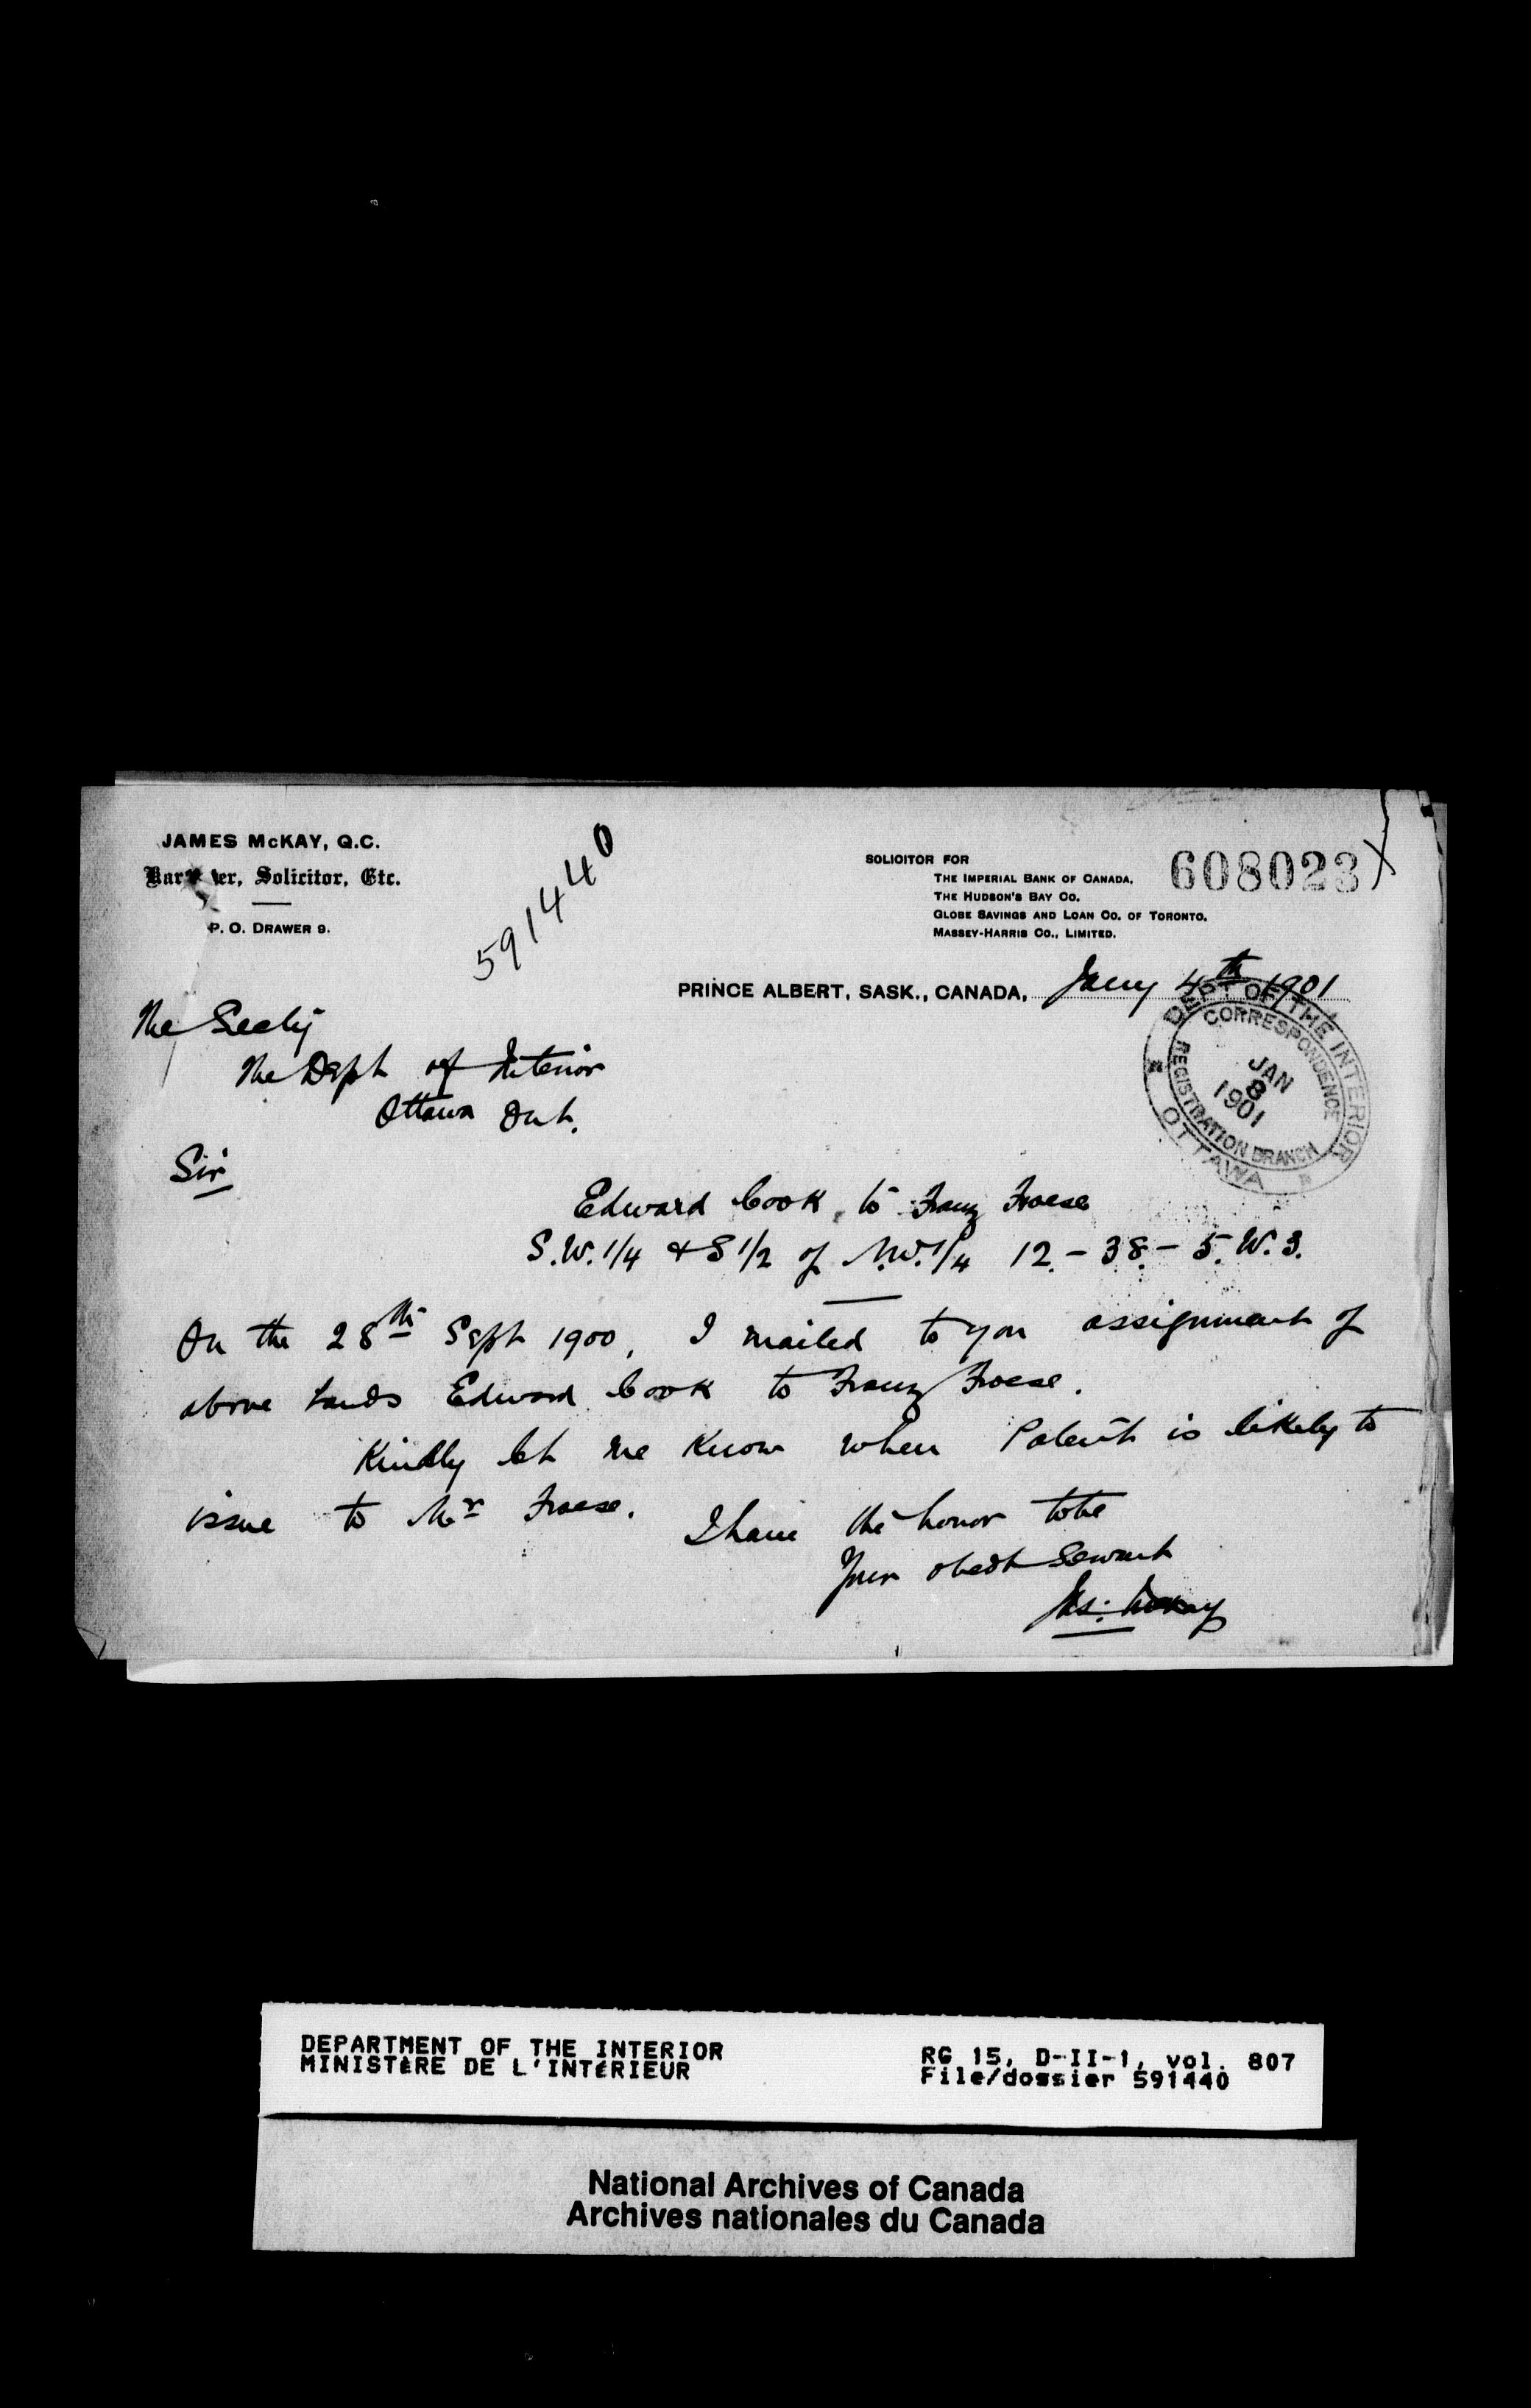 JAMES McKAY, Q.C.
Bar er, Solicitor, Etc.
P. O. DRAWER 9.
591440
SOLICITOR FOR
THE IMPERIAL BANK OF CANADA.
THE HUDSON'S BAY CO.
GLOBE SAVINGS AND LOAN CO. OF TORONTO.
MASSEY-HARRIS CO., LIMITED.
608023
PRINCE ALBERT, SASK., CANADA, Jany 4th 1901
DEPT OF THE INTERIOR
CORRESPONDENCE
JAN
8
1901
REGISTRATION BRANCH
OTTAWA
The Secty
The Dept of Interior
Ottawa Ont.
Sir
Edward Cook to Franz Froese
S.W. 1/4 & S 1/2 of N.W. 1/4 12.-38.-5. W. 3.
On the 28th Sept 1900, I mailed to you assignment of
above lands Edward Cook to Franz Froese.
Kindly let me know when Patent is likely to
issue to Mr Froese.
I have the honor to be
Your obedt Servant
Jas: McKay
DEPARTMENT OF THE INTERIOR
MINISTÈRE DE L'INTÉRIEUR
RG 15, D-II-1, vol. 807
File/dossier 591440
National Archives of Canada
Archives nationales du Canada